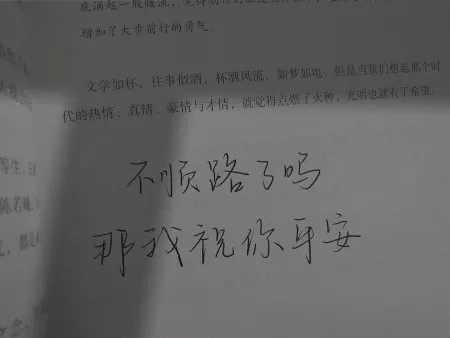 增加了大步前行的勇气。
文学如杯，往事似酒，杯酒风流，如梦如电。但是当我们想起那个时
代的热情、真情、豪情与才情，就觉得点燃了火种，光明也就有了希望。
不顺路了吗
那我祝你平安